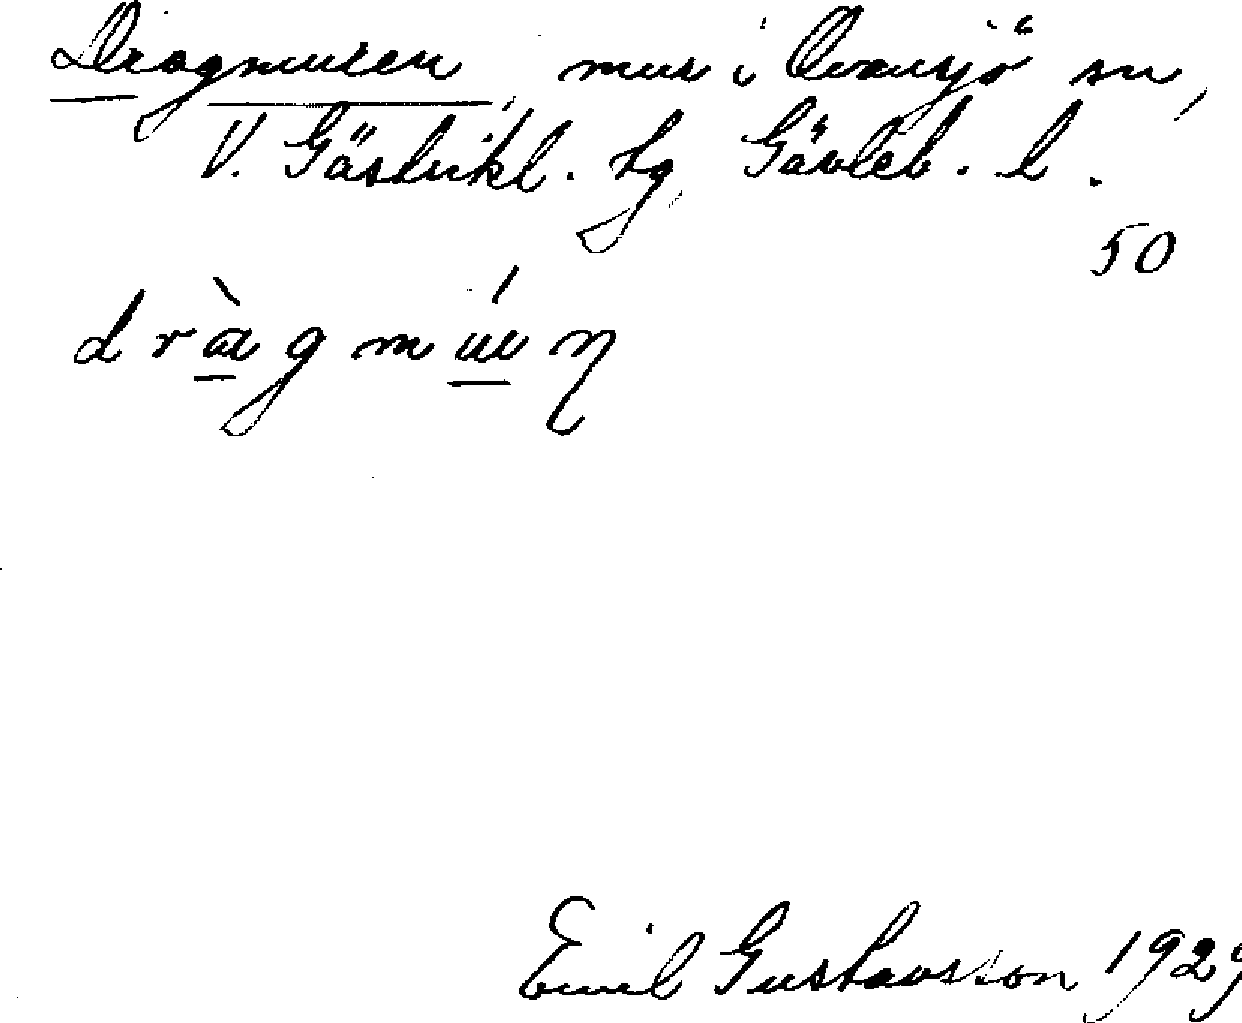 Dragmuren, mur i Ovansjö sn,
V. Gästrikl. tg, Gävleb. l.
50
dràgmúŋ
Emil Gustavsson 1929